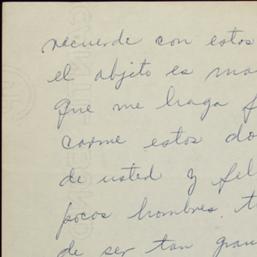 recuerde con estos
el objito es ma
que me haga f
carme estos do
de usted y fel
pocos hombres. t
de ser tan gran